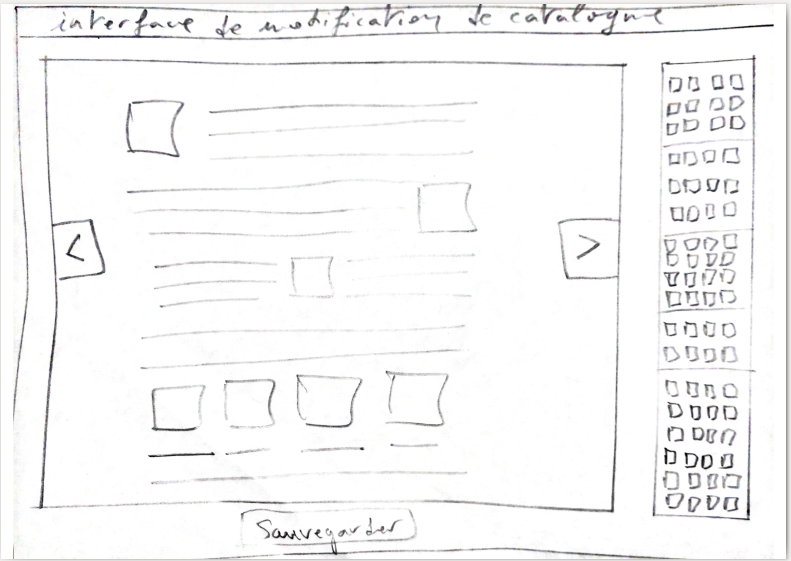 interface de modification de catalogue
<
>
Sauvegarder